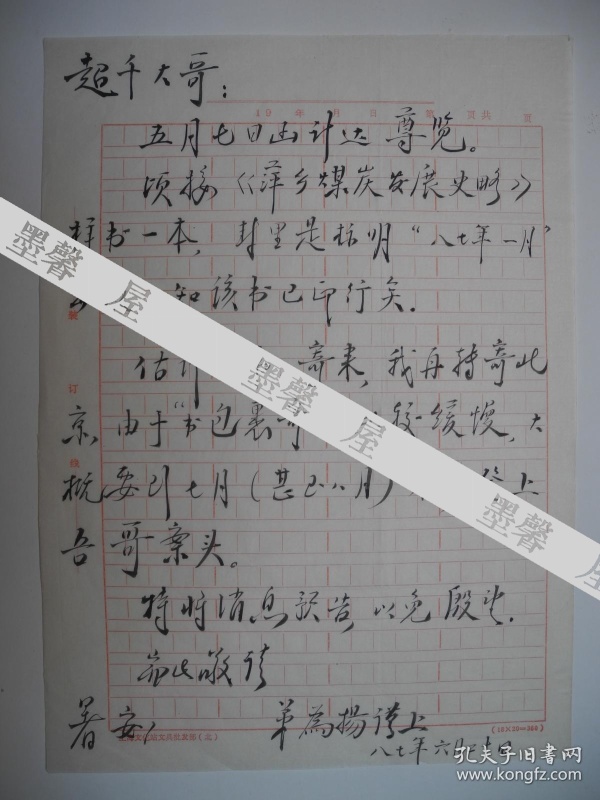 超千大哥：
19 年 月 日 第 页共 页
五月七日函计达 尊览。
顷接《萍乡煤炭发展史略》
样书一本，封里是标明“八七年一月”
知该书已印行矣。
估 寄来，我再转寄北
京，由于“书包裹寄 较缓慢，大
概要到七月（甚至八月） 上
吾哥案头。
特将消息预告，以免殷盼。
耑此敬请
暑安！ 弟为扬谨上
八七年六月 日
装
订
线
(18×20=360)
墨馨 屋
墨馨 屋
墨馨 屋
孔夫子旧书网
www.kongfz.com